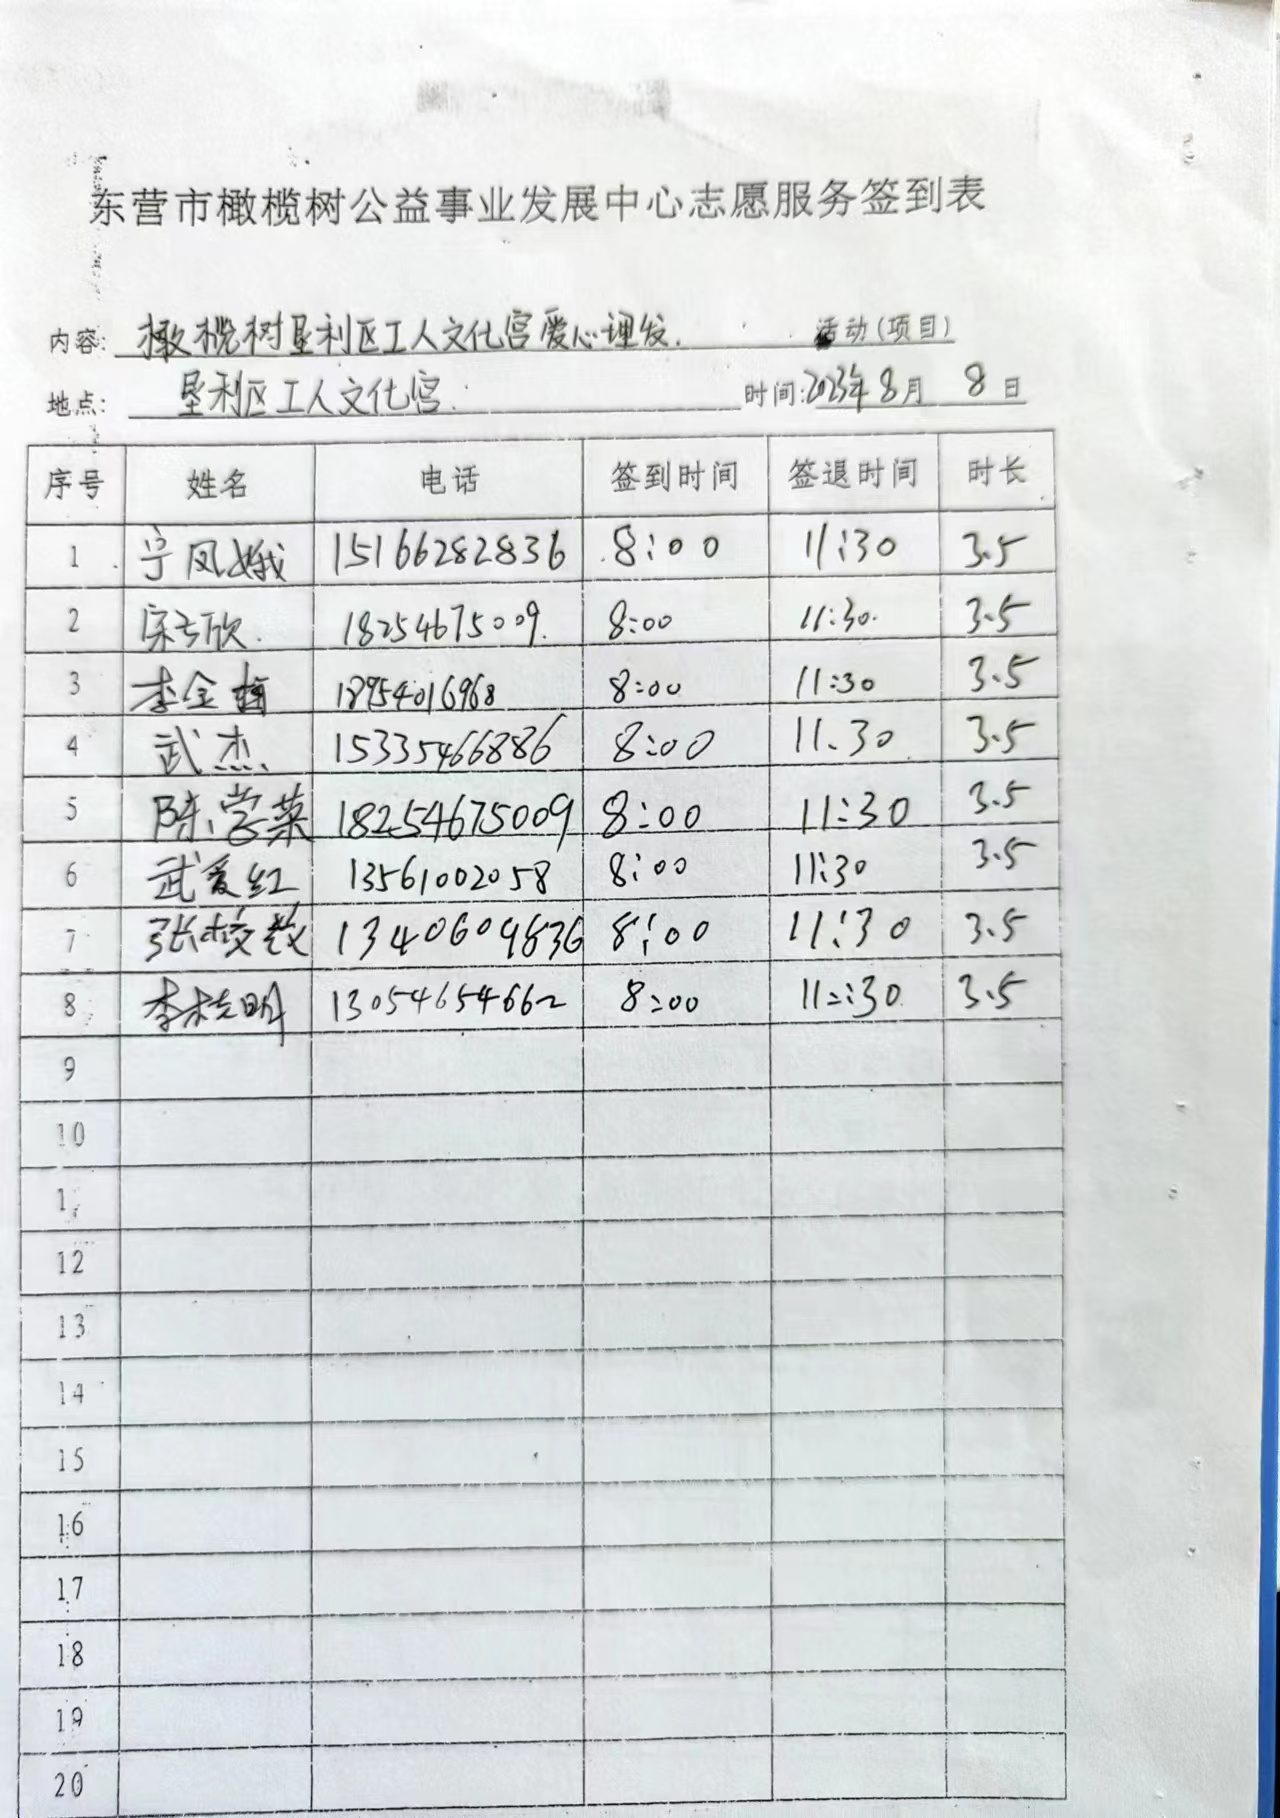 东营市橄榄树公益事业发展中心志愿服务签到表
内容: 橄榄树垦利区工人文化宫爱心理发. 活动(项目)
地点: 垦利区工人文化宫. 时间:2023年8月 8日
序号 姓名 电话 签到时间 签退时间 时长
1 宁凤娥 15166282836 8:00 11:30 3.5
2 18254675009. 8:00 11:30. 3.5
3 李金梅 18954016968 8:00 11:30 3.5
4 武杰 15335466886 8:00 11.30 3.5
5 陈学菜 18254675009 8:00 11:30 3.5
6 武爱红 13561002058 8:00 11:30 3.5
7 张校数 1340609836 8:00 11:30 3.5
8 李桂明 13054654662 8:00 11:30. 3.5
9
10
1
12
13
14
15
16
17
18
19
20